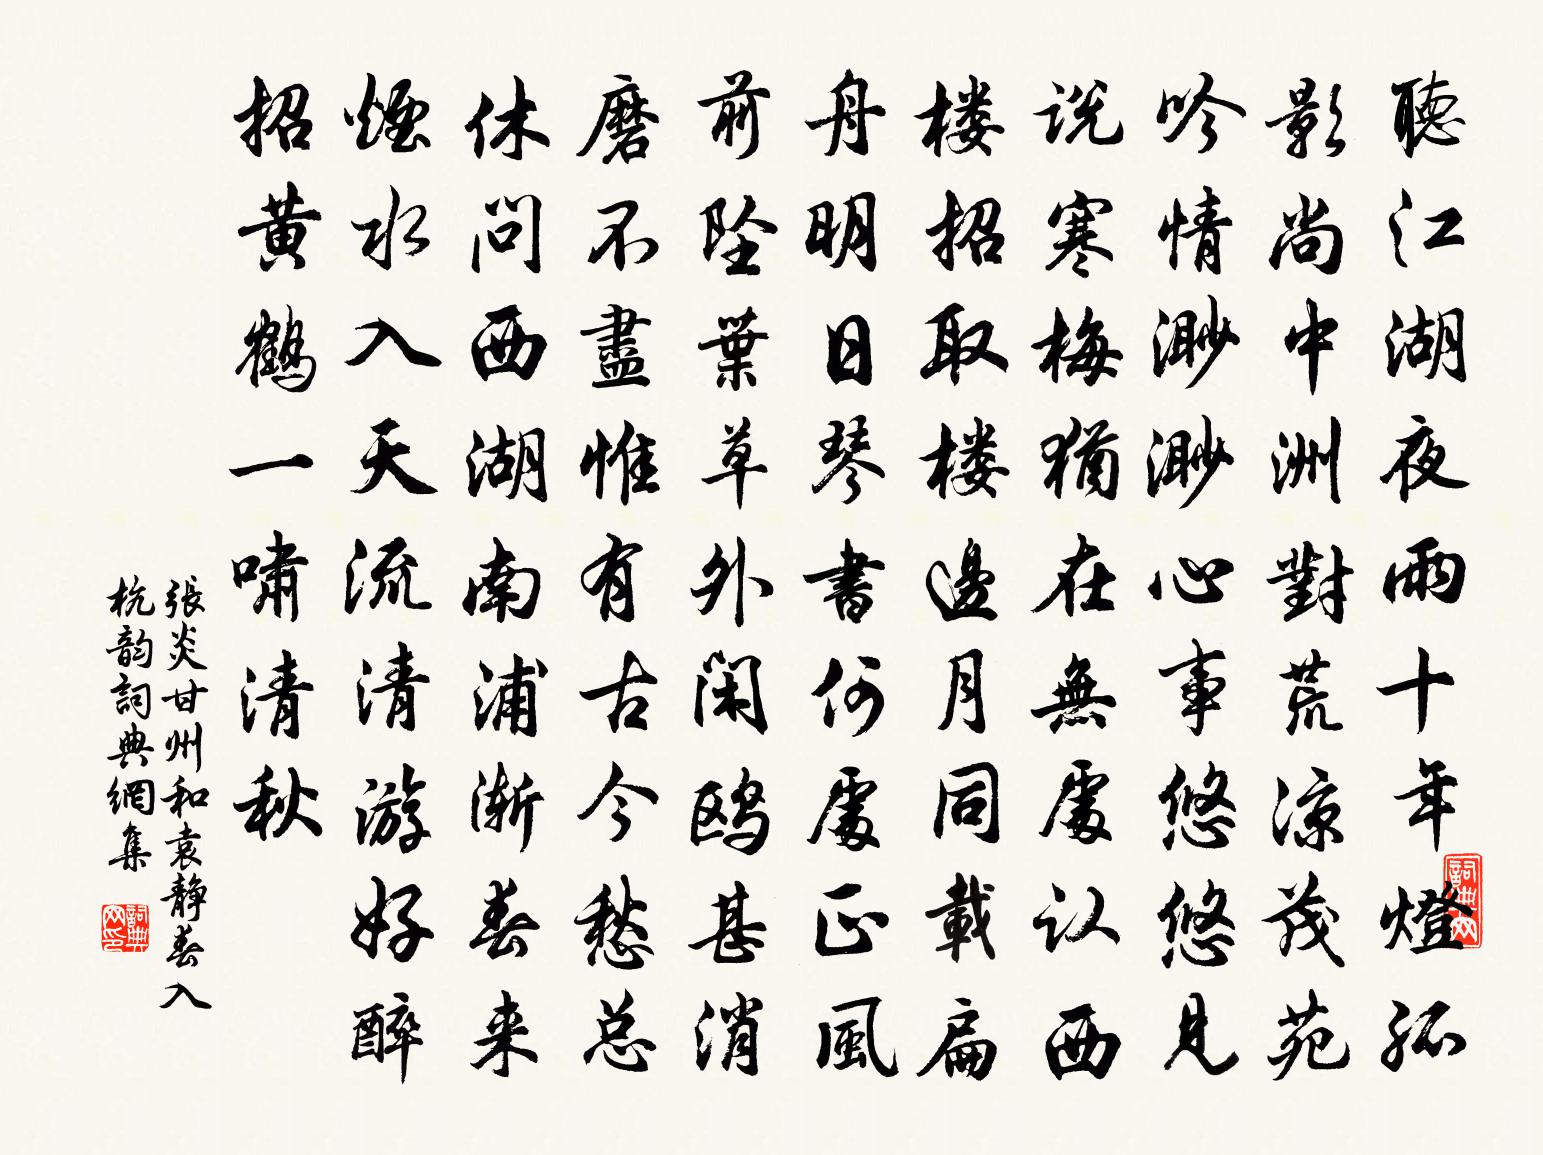 聽江湖夜雨十年燈孤
影尚中洲對荒涼茂苑
吟情渺渺心事悠悠見
说寒梅猶在無處认西
楼招取楼邊月同載扁
舟明日琴書何處正風
前坠葉草外闲鸥甚消
磨不盡惟有古今愁总
休问西湖南浦渐春来
煙水入天流清游好醉
招黄鶴一啸清秋
張炎甘州和袁静春入
杭韵詞典網集
詞典网
詞典网印